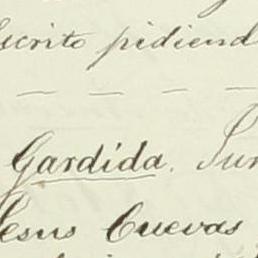 scrito pidiend
Gardida. Jun
Jesus Cuevas